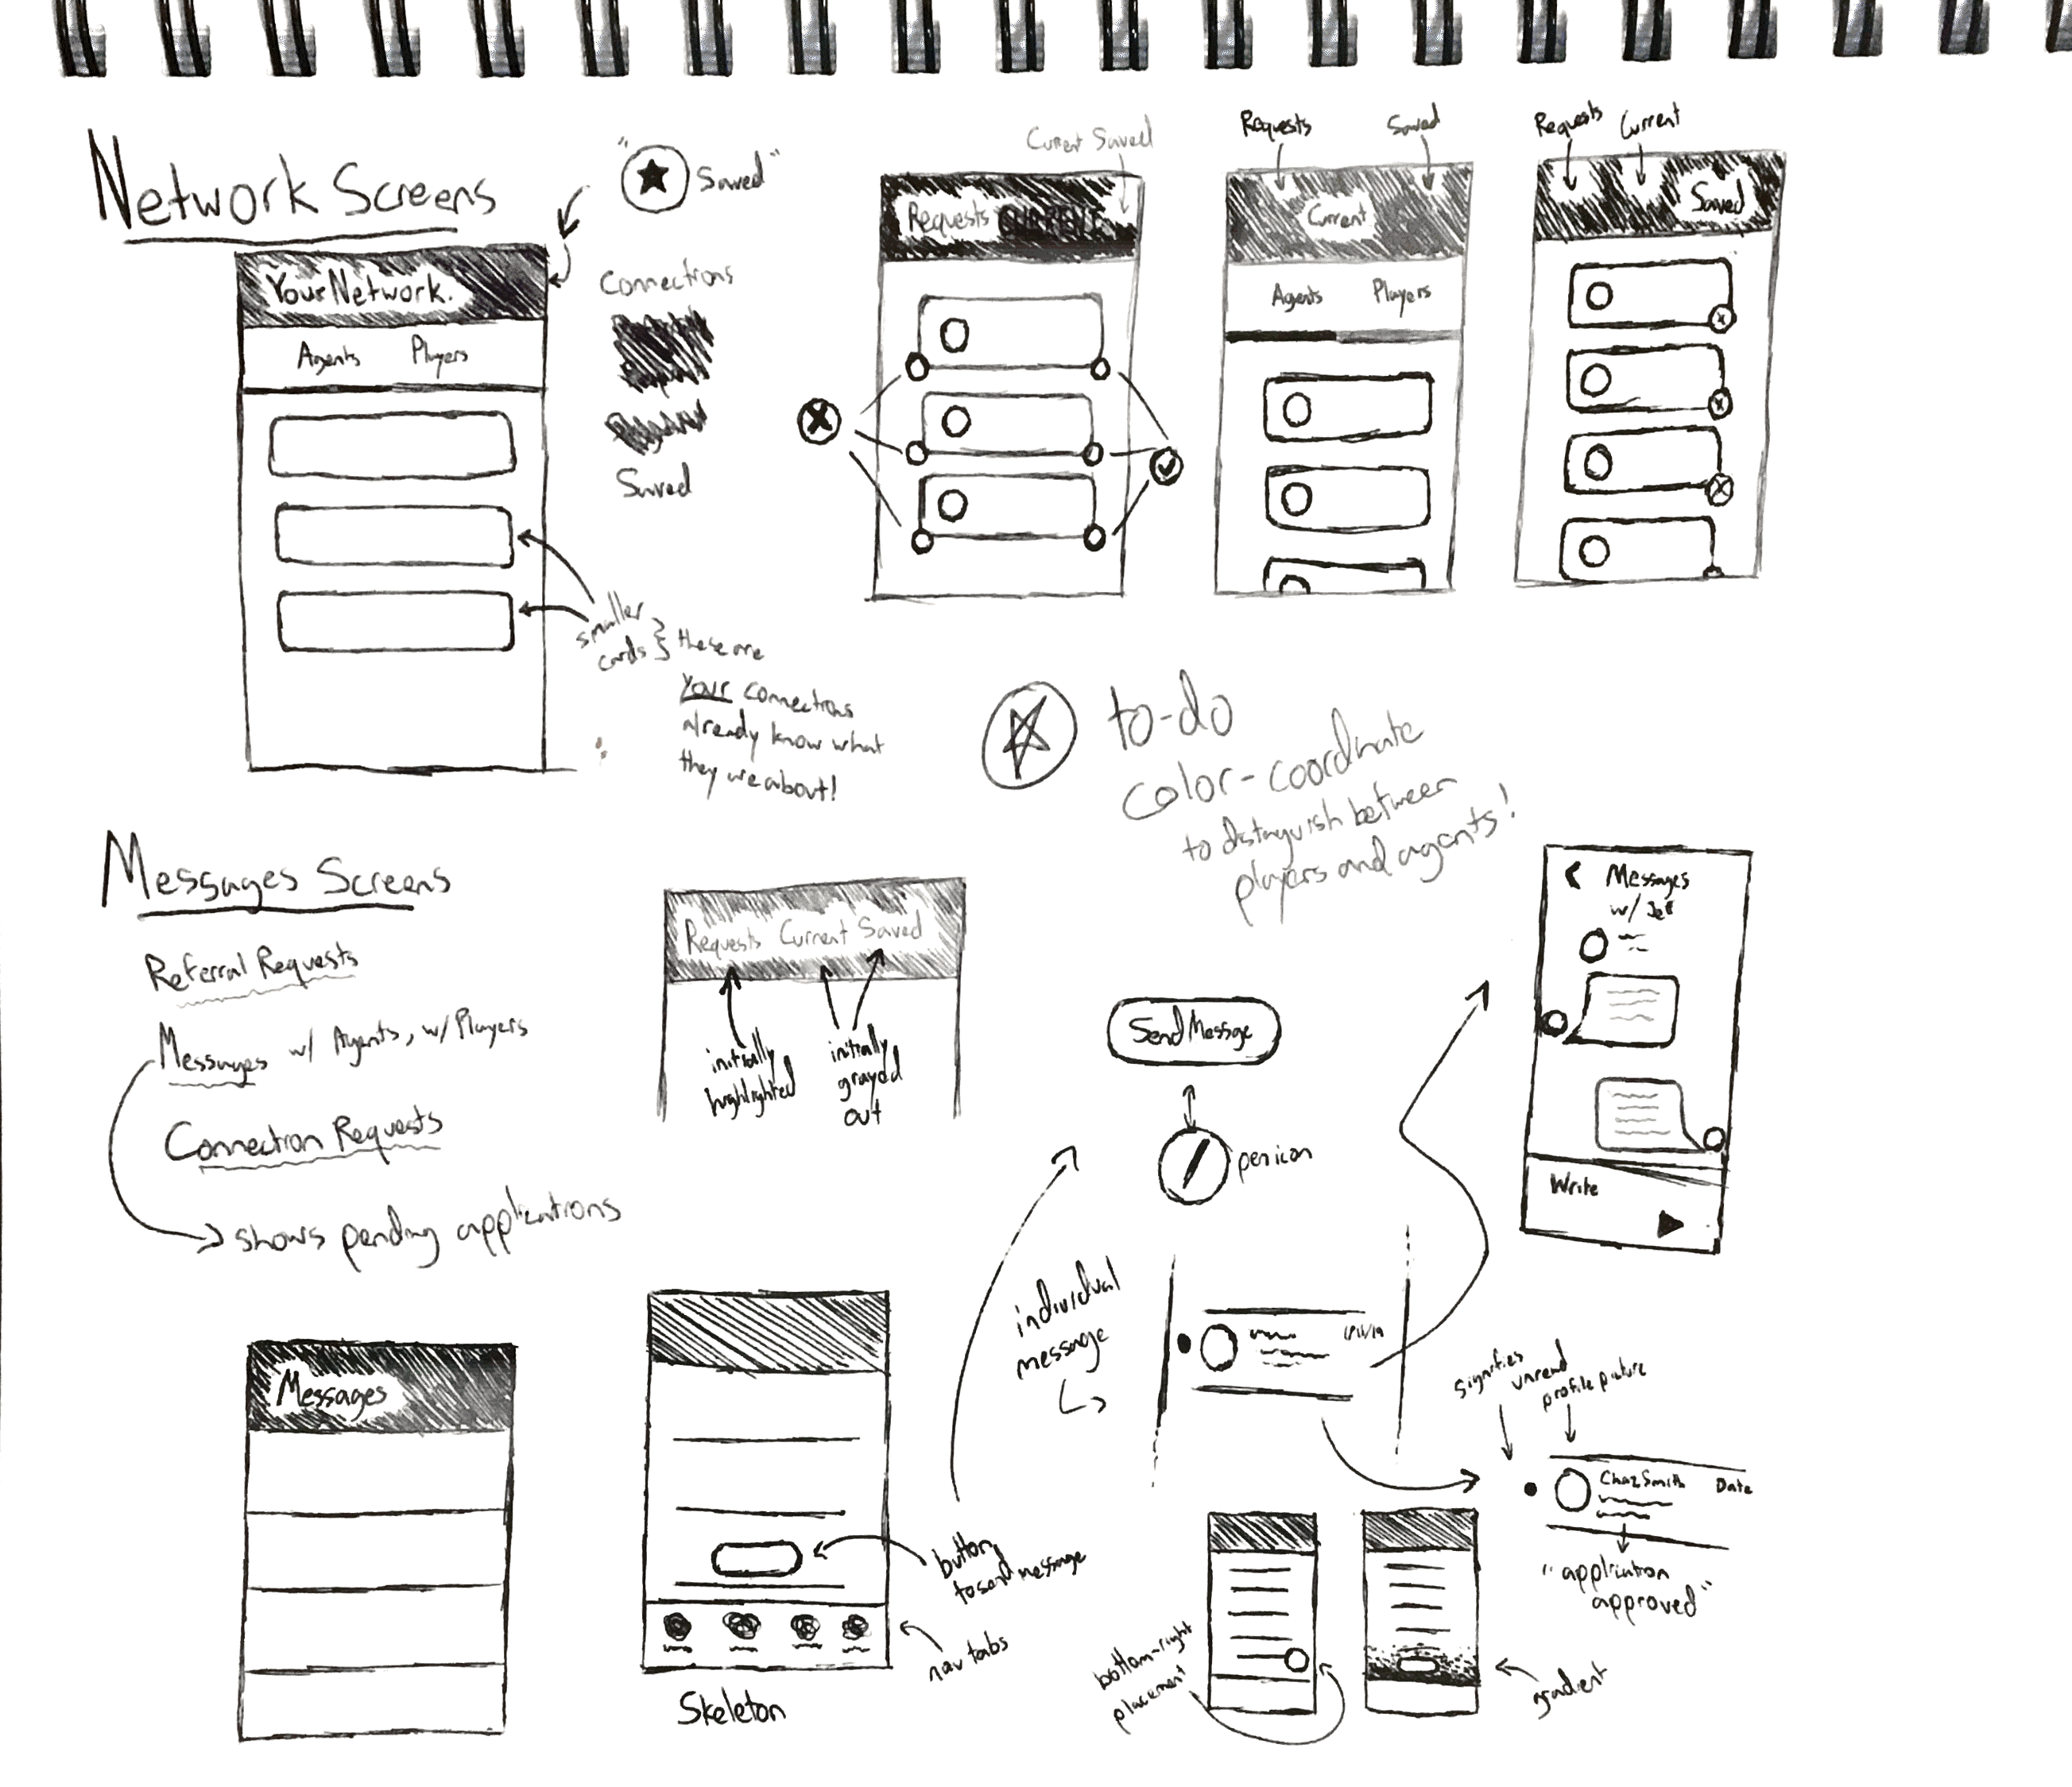 Network Screens
" ★ Saved "
Your Network.
Agents Players
Connections
Saved
smaller
cards } these are
Your connections
already know what
they're about!
Current Saved
Requests CURRENT
Requests Saved
Current
Agents Players
Requests Current
Saved
to-do
color-coordinate
to distinguish between
players and agents!
Messages Screens
Referral Requests
Messages w/ Agents, w/ Players
Connection Requests
shows pending applications
Requests Current Saved
initially
highlighted
initially
grayed
out
Send Message
pen icon
Messages
w/ Jeff
Write
individual
message
signifies
unread
profile picture
Chaz Smith Date
"application
approved"
Messages
button
to send message
nav tabs
Skeleton
bottom-right
placement
gradient